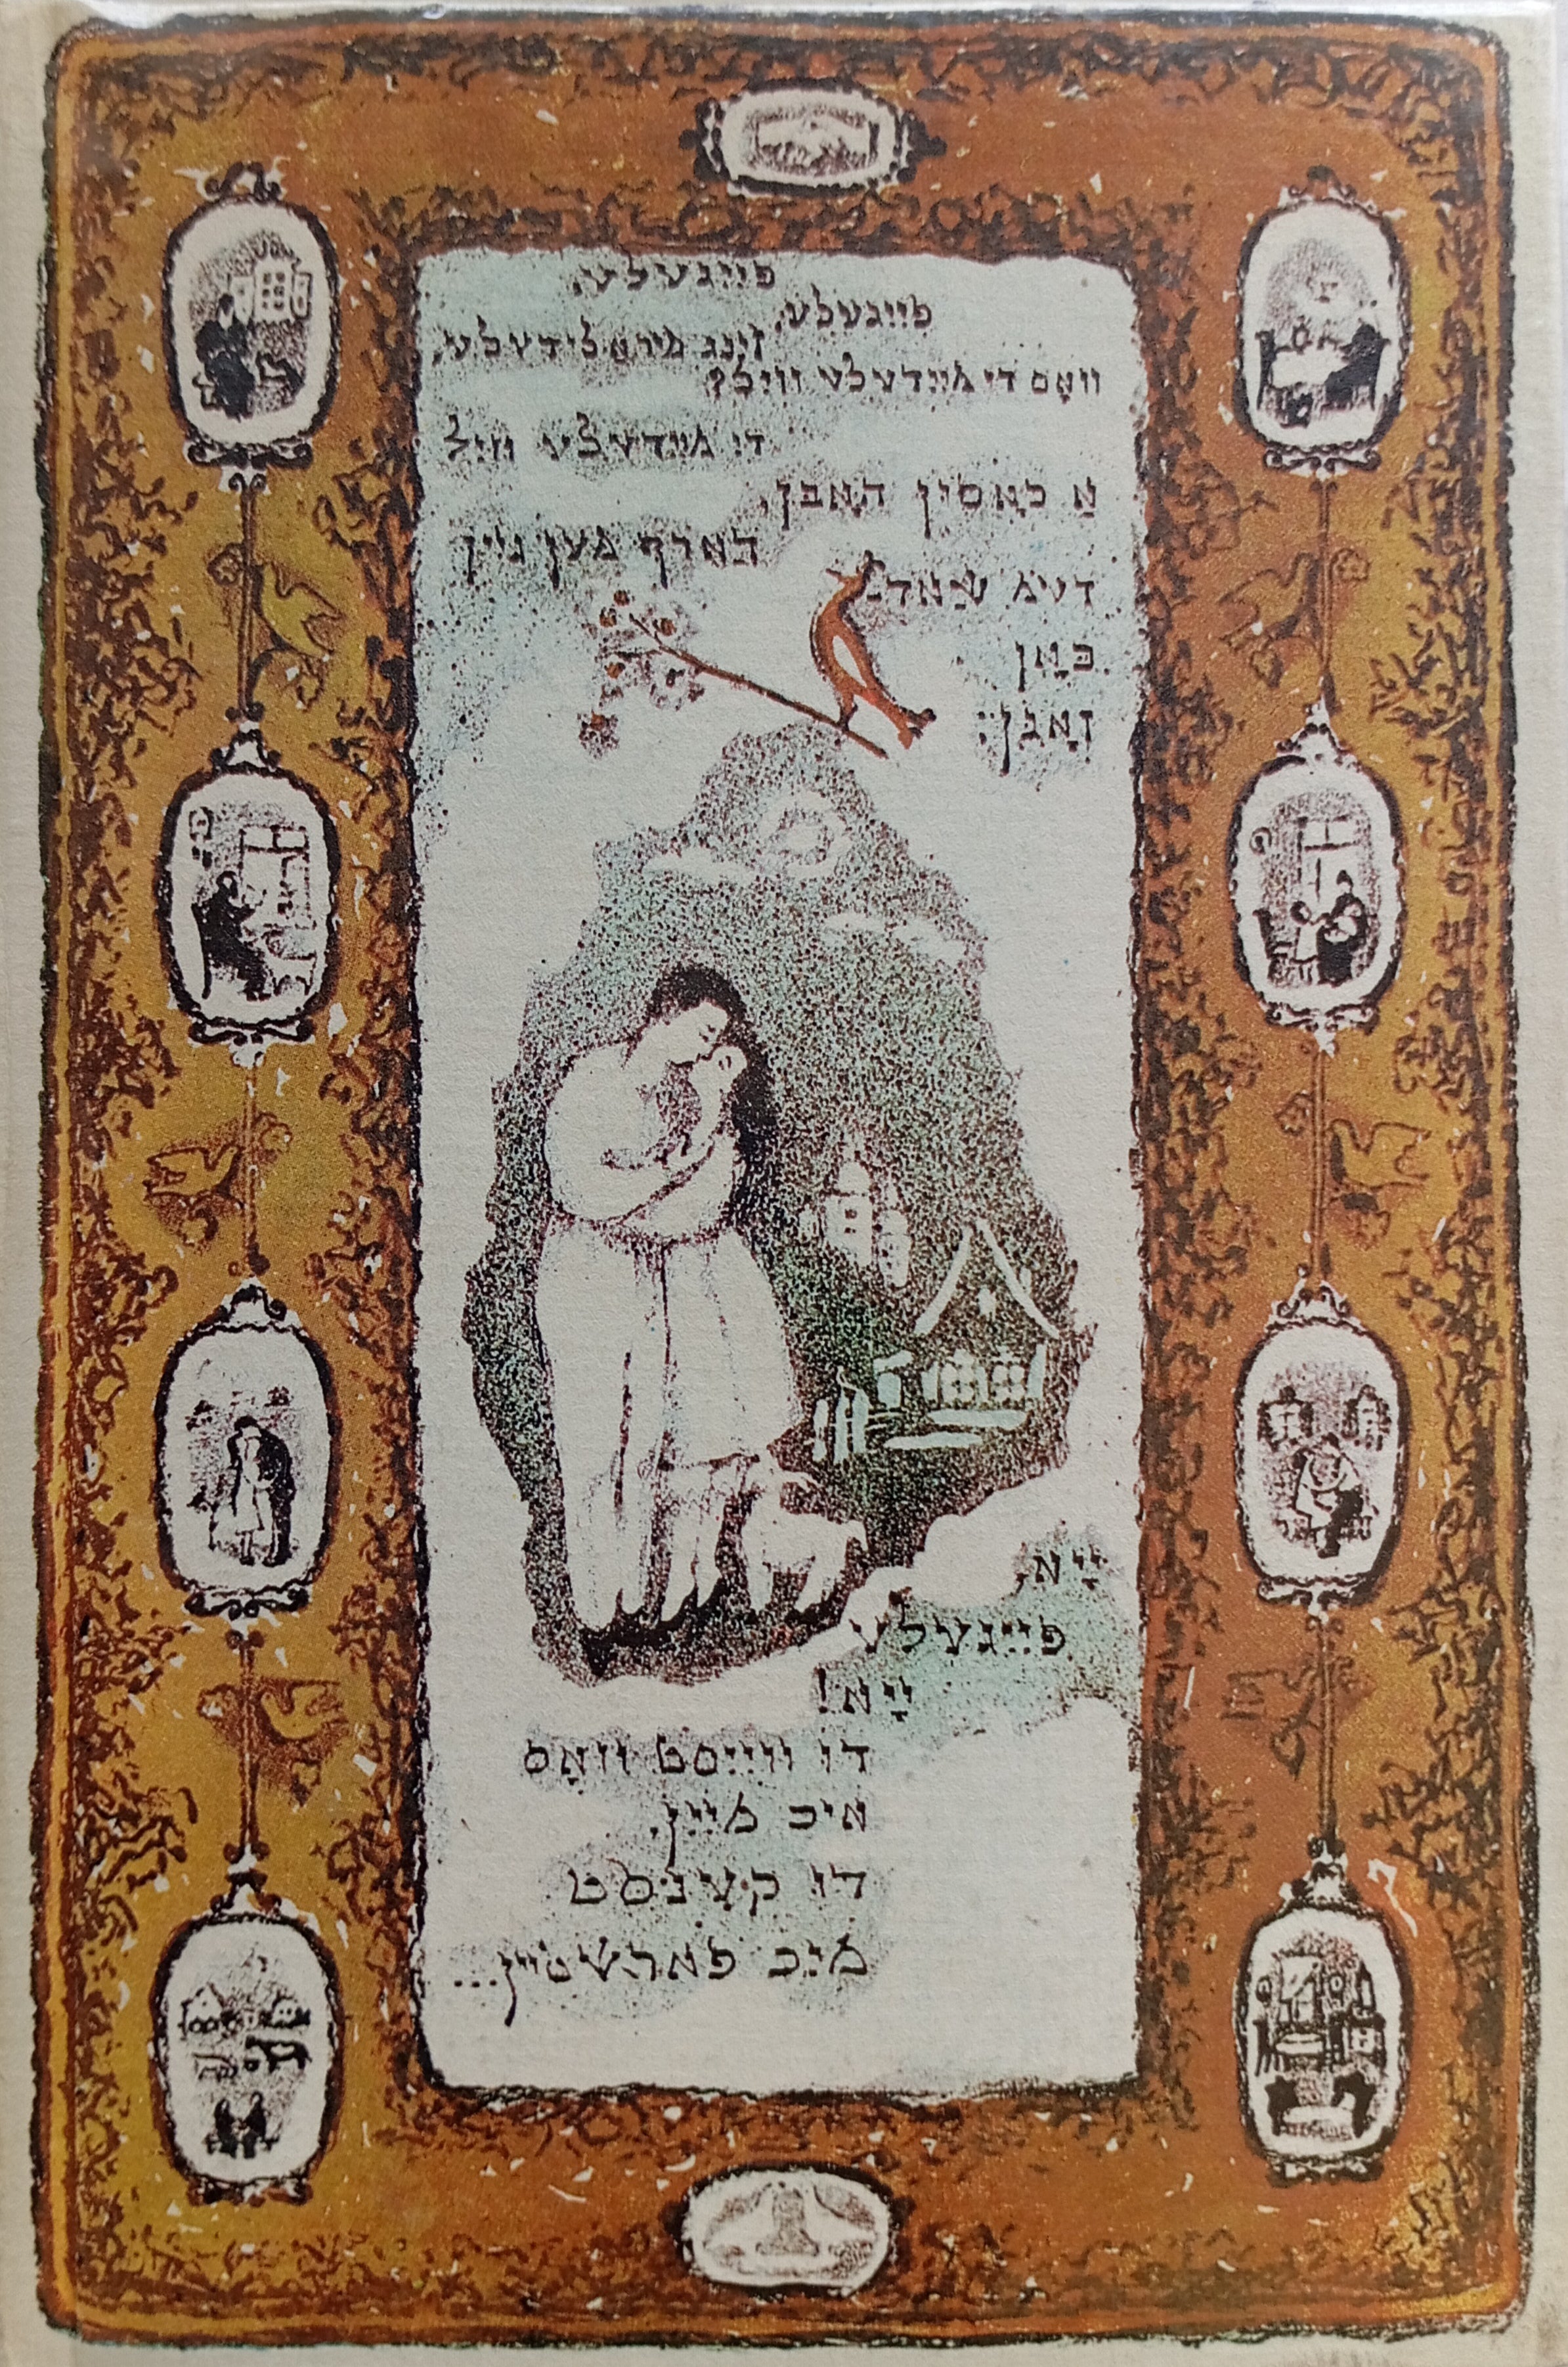 פֿייגעלע,
פֿייגעלע,
זינג מיר אַ לידעלע,
וואָס די מיידעלע וויל?
די מיידעלע וויל
אַ כאָסין האָבן,
דאַרף מען גיין
דעם שאַד־
כאַן
זאָגן:
יִיאָ,
פֿייגעלע
יִיאָ!
דו ווייסט וואָס
איך מיין,
דו קענסט
מיך פֿאַרשטיין...